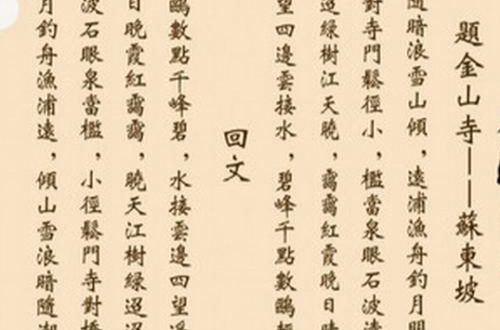 題金山寺——蘇東坡
隨暗浪雪山傾，遠浦漁舟釣月明
對寺門鬆徑小，檻當泉眼石波清
迢綠樹江天曉，靄靄紅霞晚日晴
望四邊雲接水，碧峰千點數鷗輕
回文
鷗數點千峰碧，水接雲邊四望遙
日晚霞紅靄靄，曉天江樹綠迢迢
波石眼泉當檻，小徑鬆門寺對橋
月釣舟漁浦遠，傾山雪浪暗隨潮